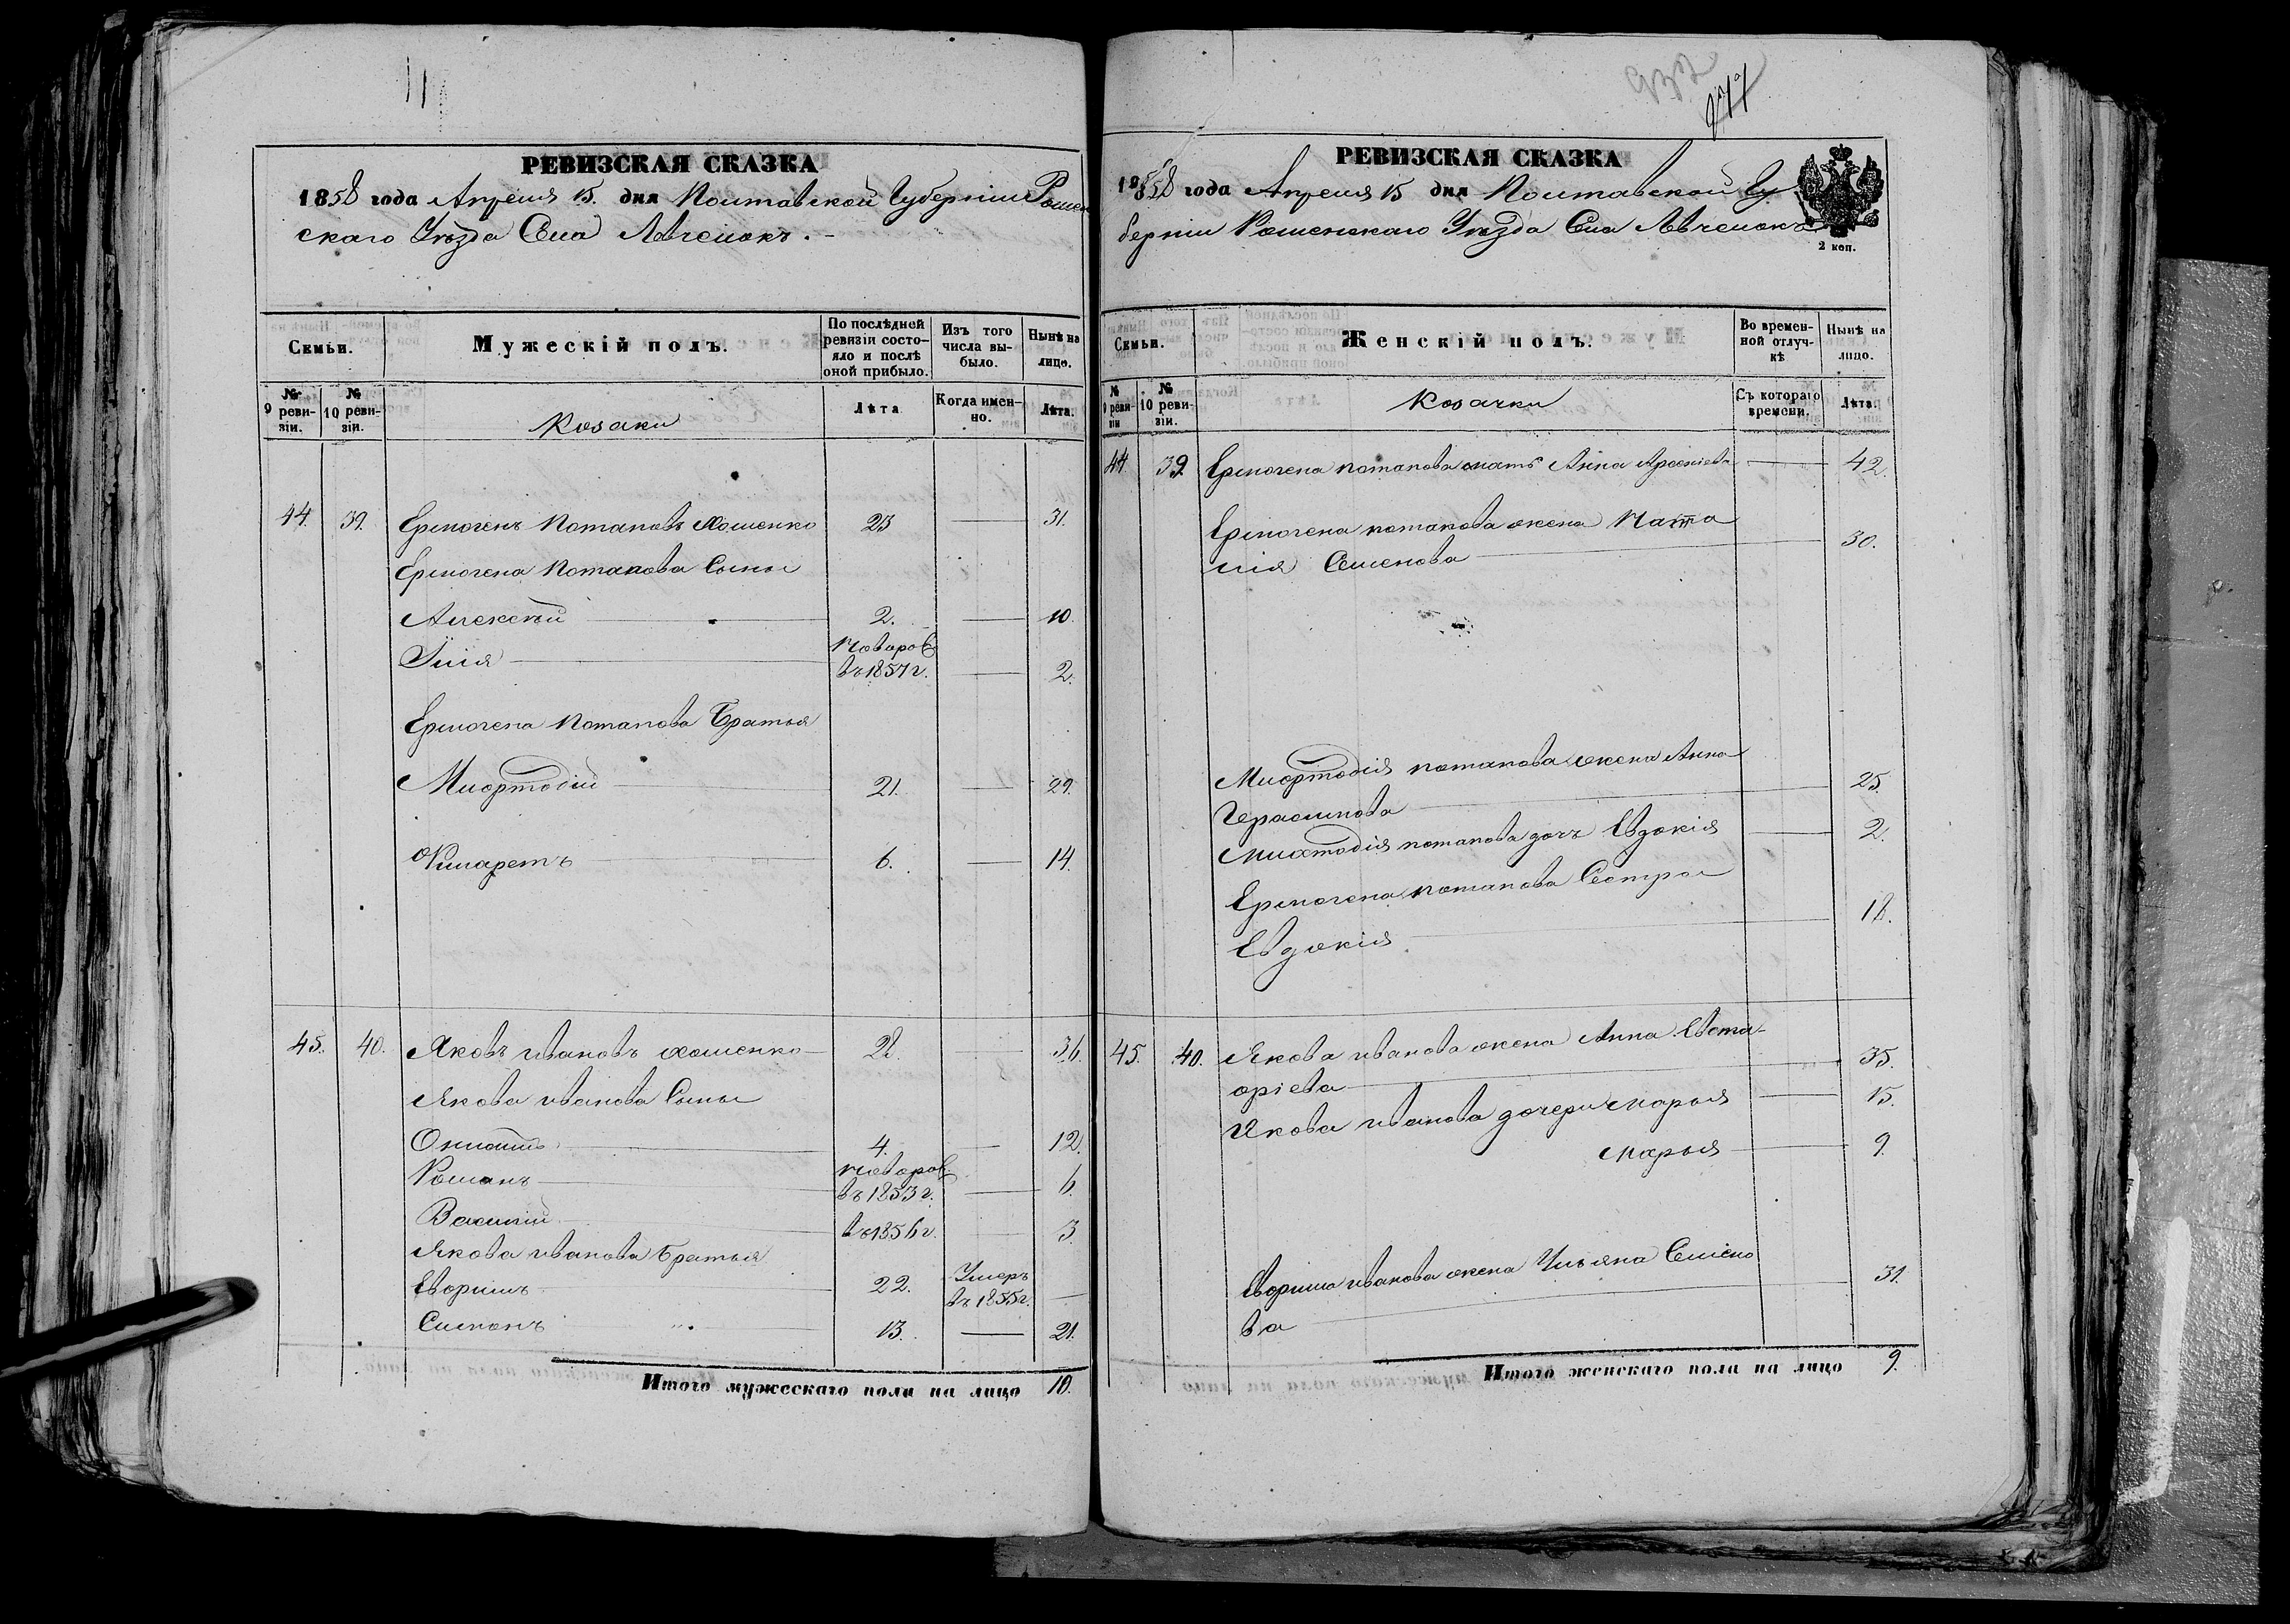 РЕВИЗСКАЯ СКАЗКА
1858 года Апреля 15. дня Полтавской Губерніи Ромен
скаго Уѣзда Села
Семьи.
Мужескій полъ.
По послѣдней ревизіи состояло и послѣ оной прибыло.
Изъ того числа выбыло.
Нынѣ на лицо.
№ 9 ревизіи.
№ 10 ревизіи.
Козаки
Лѣта
Когда именно.
Лѣта.
44. 39. Ермогенъ Потаповъ Хоменко 23 31.
Ермогена Потапова Сыны
Алексѣй 2. 10.
Илія Новорож
въ 1857 г. 2.
Ермогена Потапова Братья
Мефтодій 21. 29.
Филаретъ 6. 14.
45. 40. Яковъ Ивановъ Хоменко 28. 36.
Якова Иванова Сыны
4. 12.
Романъ Новорож
въ 1853 г. 6.
Василій въ 1856 г. 3.
Якова Иванова Братья
Ефримъ 22. Умеръ
въ 1855 г.
Симонъ 13. 21.
Итого мужескаго пола на лицо 10.
932
277
РЕВИЗСКАЯ СКАЗКА
1858 года Апреля 15 дня Полтавской Гу
берніи Роменскаго Уѣзда Села
2 коп.
Семьи.
Женскій полъ.
Во временной отлучкѣ
Нынѣ на лицо.
№ 9 ревизіи
№ 10 ревизіи.
Козачки
Съ котораго времени.
Лѣта.
44. 39. Ермогена Потапова мать Анна Арсеніева 42.
Ермогена Потапова жена Ната
лія Семенова 30.
Мефтодія Потапова жена Анна
Герасимова 25.
Мефтодія Потапова дочь Евдокія 2.
Ермогена Потапова Сестра
Евдокія 18.
45. 40. Якова Иванова жена Анна Евста
фіева 35.
Якова Иванова дочери Марья 15.
Марья 9.
Ефрима Иванова жена Ульяна Семено
ва 31.
Итого женскаго пола на лицо 9.